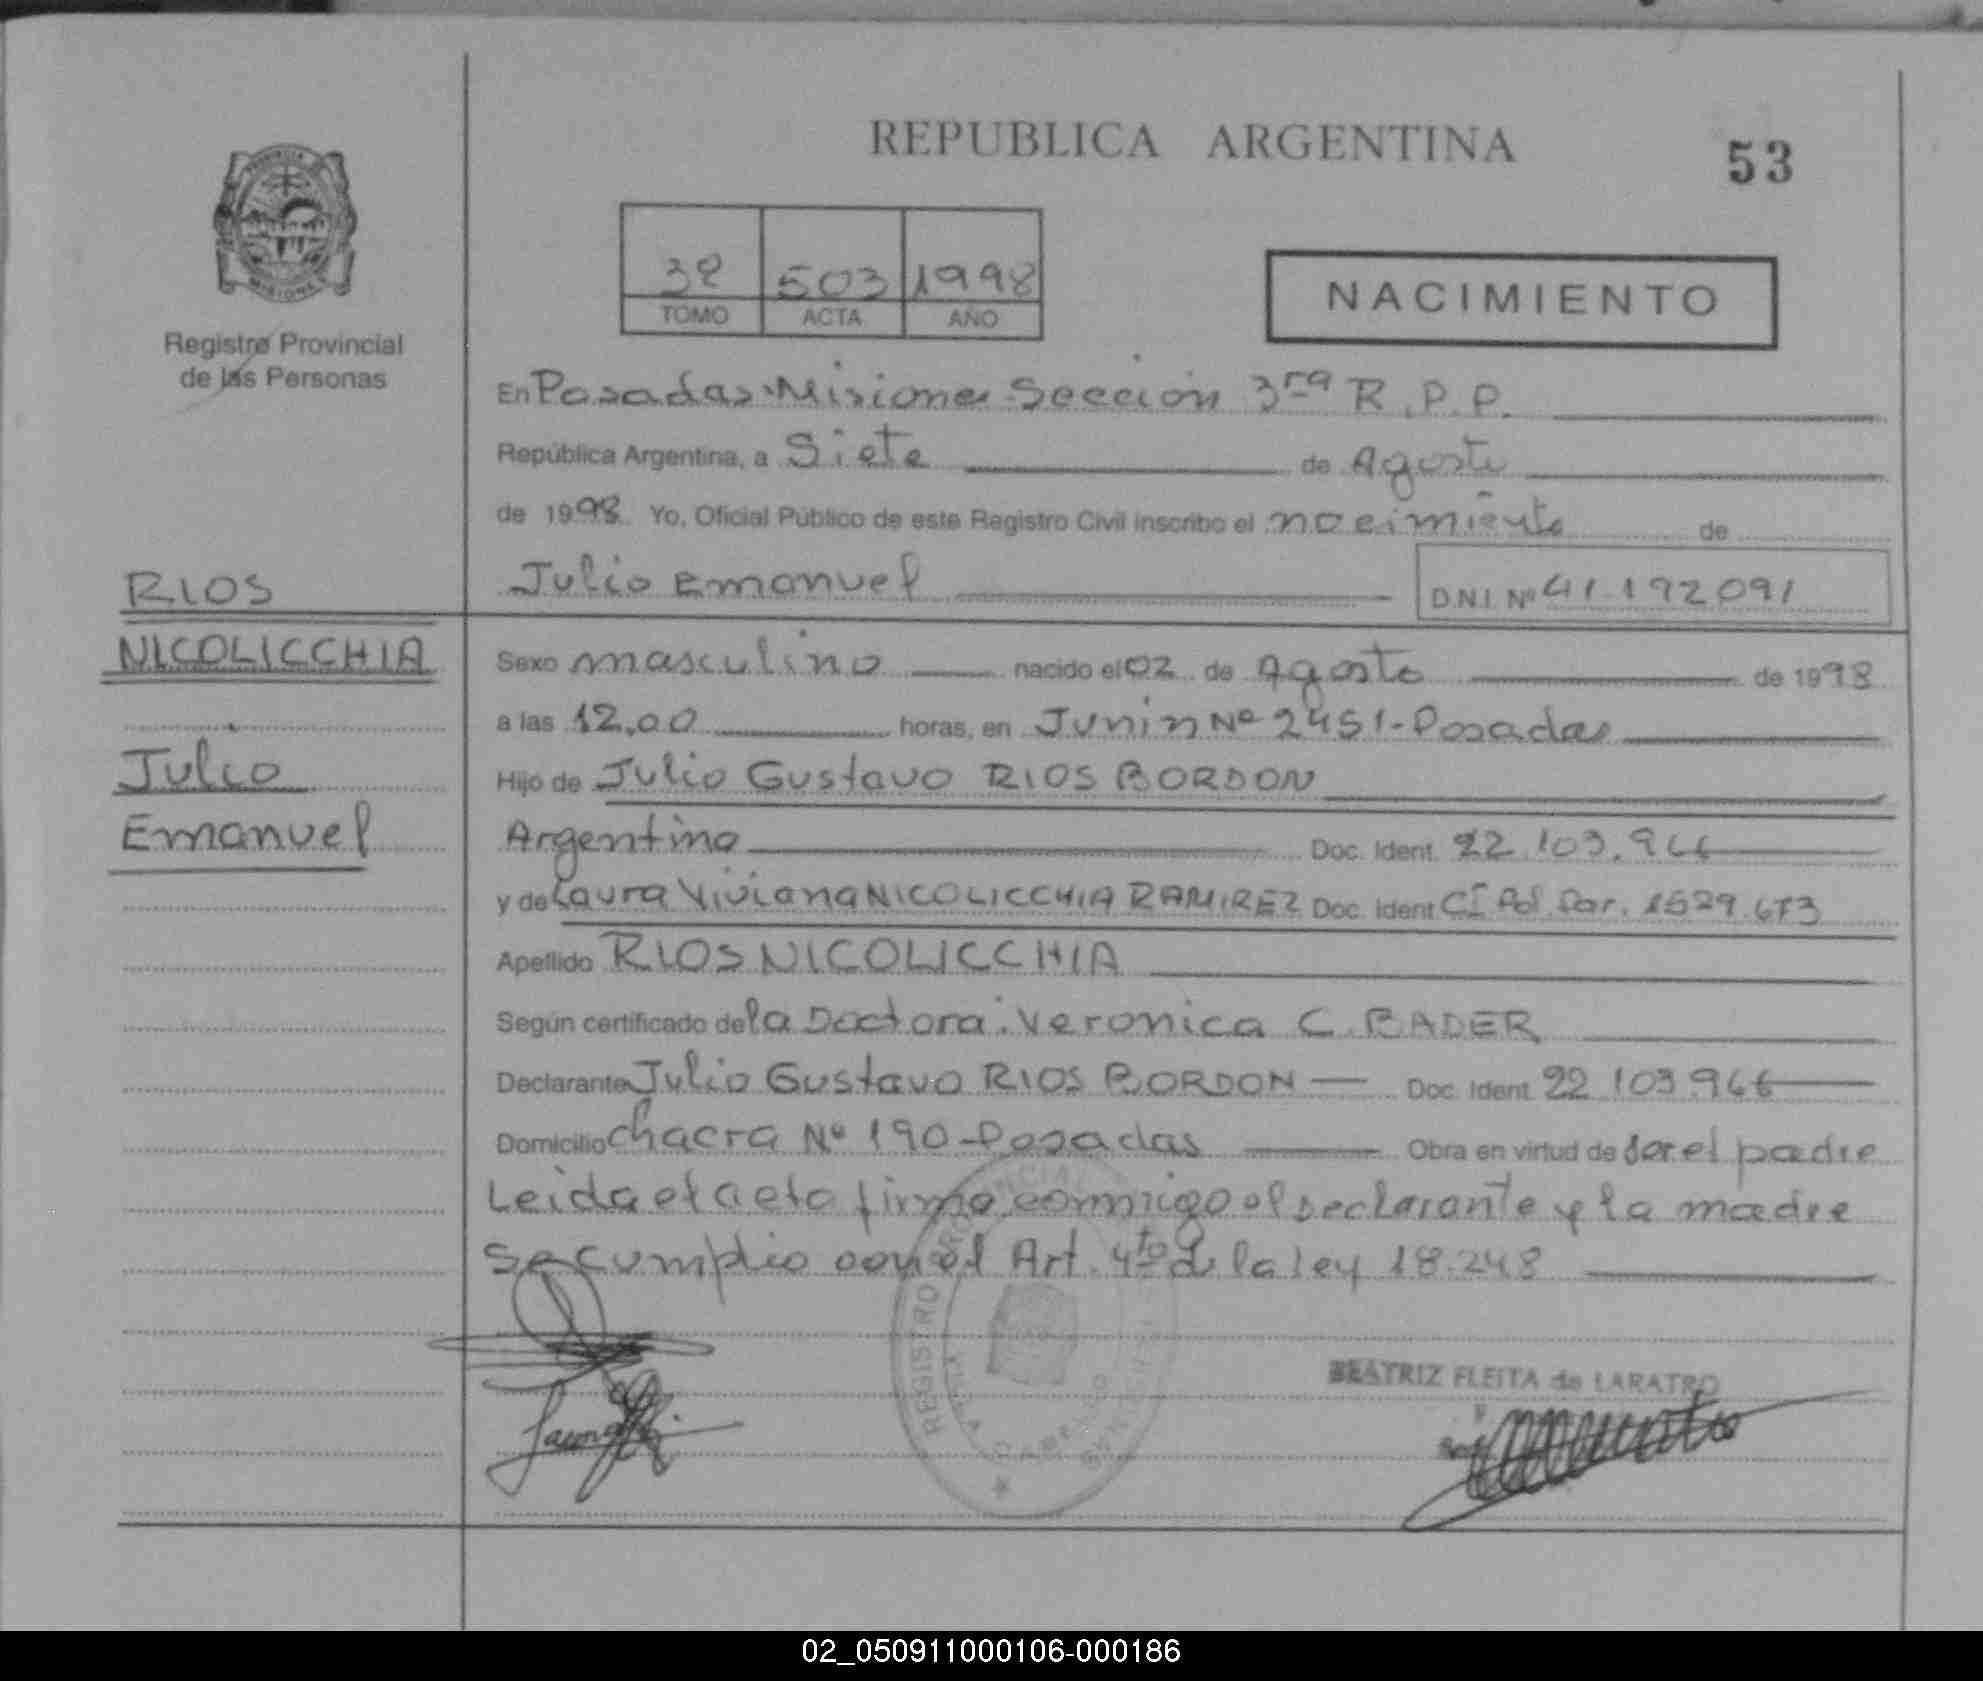 REPUBLICA ARGENTINA
53
3º 503 1998
TOMO ACTA AÑO
NACIMIENTO
PROVINCIA
MISIONES
Registro Provincial
de las Personas
En Posadas-Misiones-Sección 3ra R.P.P.
República Argentina, a Siete de Agosto
de 1998 Yo, Oficial Público de este Registro Civil inscribo el nacimiento de
Julio Emanuel D.N.I. Nº 41.192.091
RIOS
NICOLICCHIA
Julio
Emanuel
Sexo masculino nacido el 02 de Agosto de 1998
a las 12,00 horas, en Junin Nº 2451-Posadas
Hijo de Julio Gustavo RIOS BORDON
Argentino Doc. Ident. 22.103.966
y de Laura Viviana NICOLICCHIA RAMIREZ Doc. Ident CI Pol. Par. 1529.673
Apellido RIOS NICOLICCHIA
Según certificado de la Doctora: Veronica C. BADER
Declarante Julio Gustavo RIOS BORDON Doc. Ident. 22.103.966
Domicilio Chacra Nº 190-Posadas Obra en virtud de ser el padre
Leida el acta firma conmigo el declarante y la madre
Se cumplio con el Art. 4to de la ley 18.248
BEATRIZ FLEITA de LARATRO
REGISTRO PROVINCIAL
02_050911000106-000186